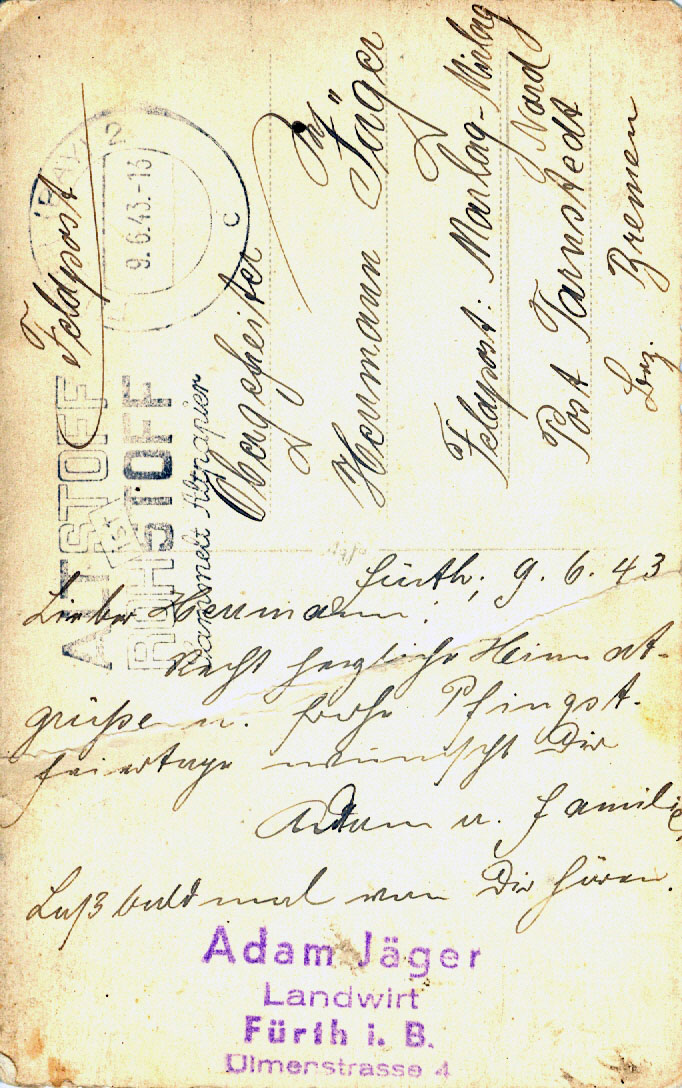 Feldpost
9.6.43.-13
c
ALTSTOFF
ist
ROHSTOFF
Sammelt Altpapier
Obergefreiter
Hermann Jäger
Feldpost: Marlag-Milag
Nord
Post Tarnstedt
Bez. Bremen
Fürth, 9. 6. 43
Lieber Hermann!
Recht herzliche Heimat-
grüße u. frohe Pfingst-
feiertage wünscht Dir
Adam u. Familie,
Laß bald mal von Dir hören.
Adam Jäger
Landwirt
Fürth i. B.
Ulmenstrasse 4